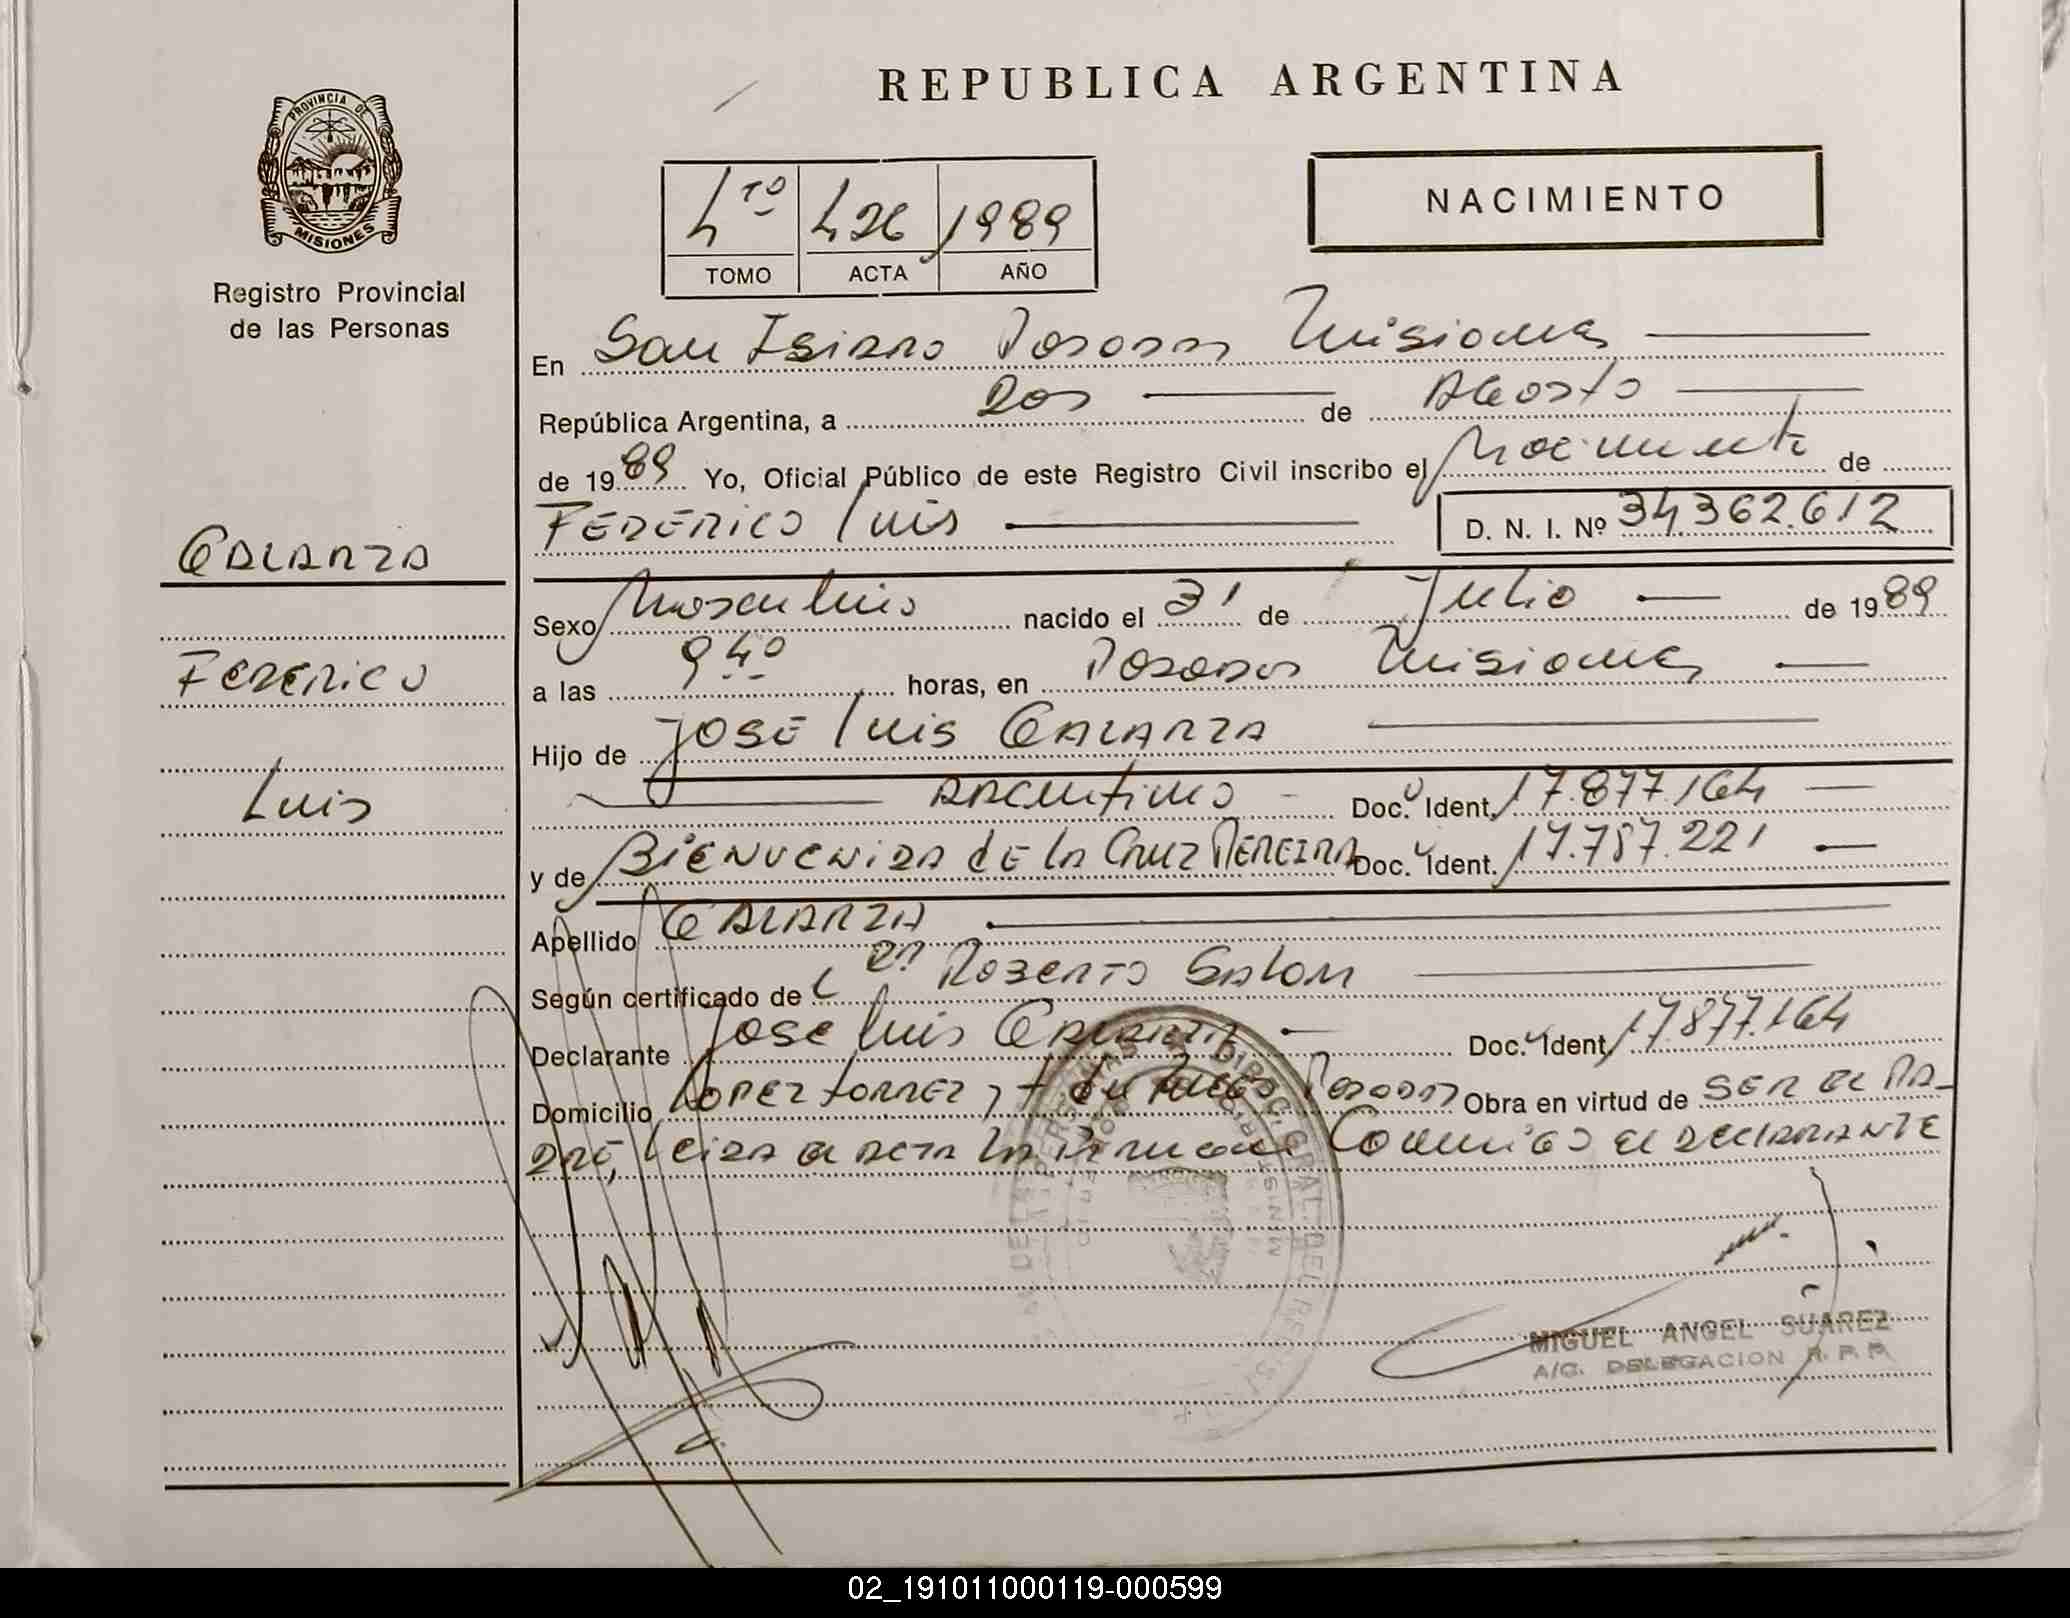 REPUBLICA ARGENTINA
PROVINCIA DE
MISIONES
Registro Provincial
de las Personas
4to 426 1989
TOMO ACTA AÑO
NACIMIENTO
En San Isidro Posadas Misiones
República Argentina, a Dos de Agosto
de 1989 Yo, Oficial Público de este Registro Civil inscribo el Nacimiento de
Federico Luis D. N. I. Nº 34.362.612
GALARZA
Federico
Luis
Sexo Masculino nacido el 31 de Julio de 1989
a las 9 40 horas, en Posadas Misiones
Hijo de Jose Luis GALARZA
Argentino Doc. Ident. 17.877.164
y de Bienvenida de la Cruz Pereira Doc. Ident. 17.787.221
Apellido GALARZA
Según certificado de Dr Roberto Salom
Declarante Jose Luis Galarza Doc. Ident. 17.877.164
Domicilio Lopez Torrez y Posadas Obra en virtud de ser el pa-
dre, leida el acta la firma Conmigo el declarante
MIGUEL ANGEL SUAREZ
A/C. DELEGACION R. P. P.
02_191011000119-000599